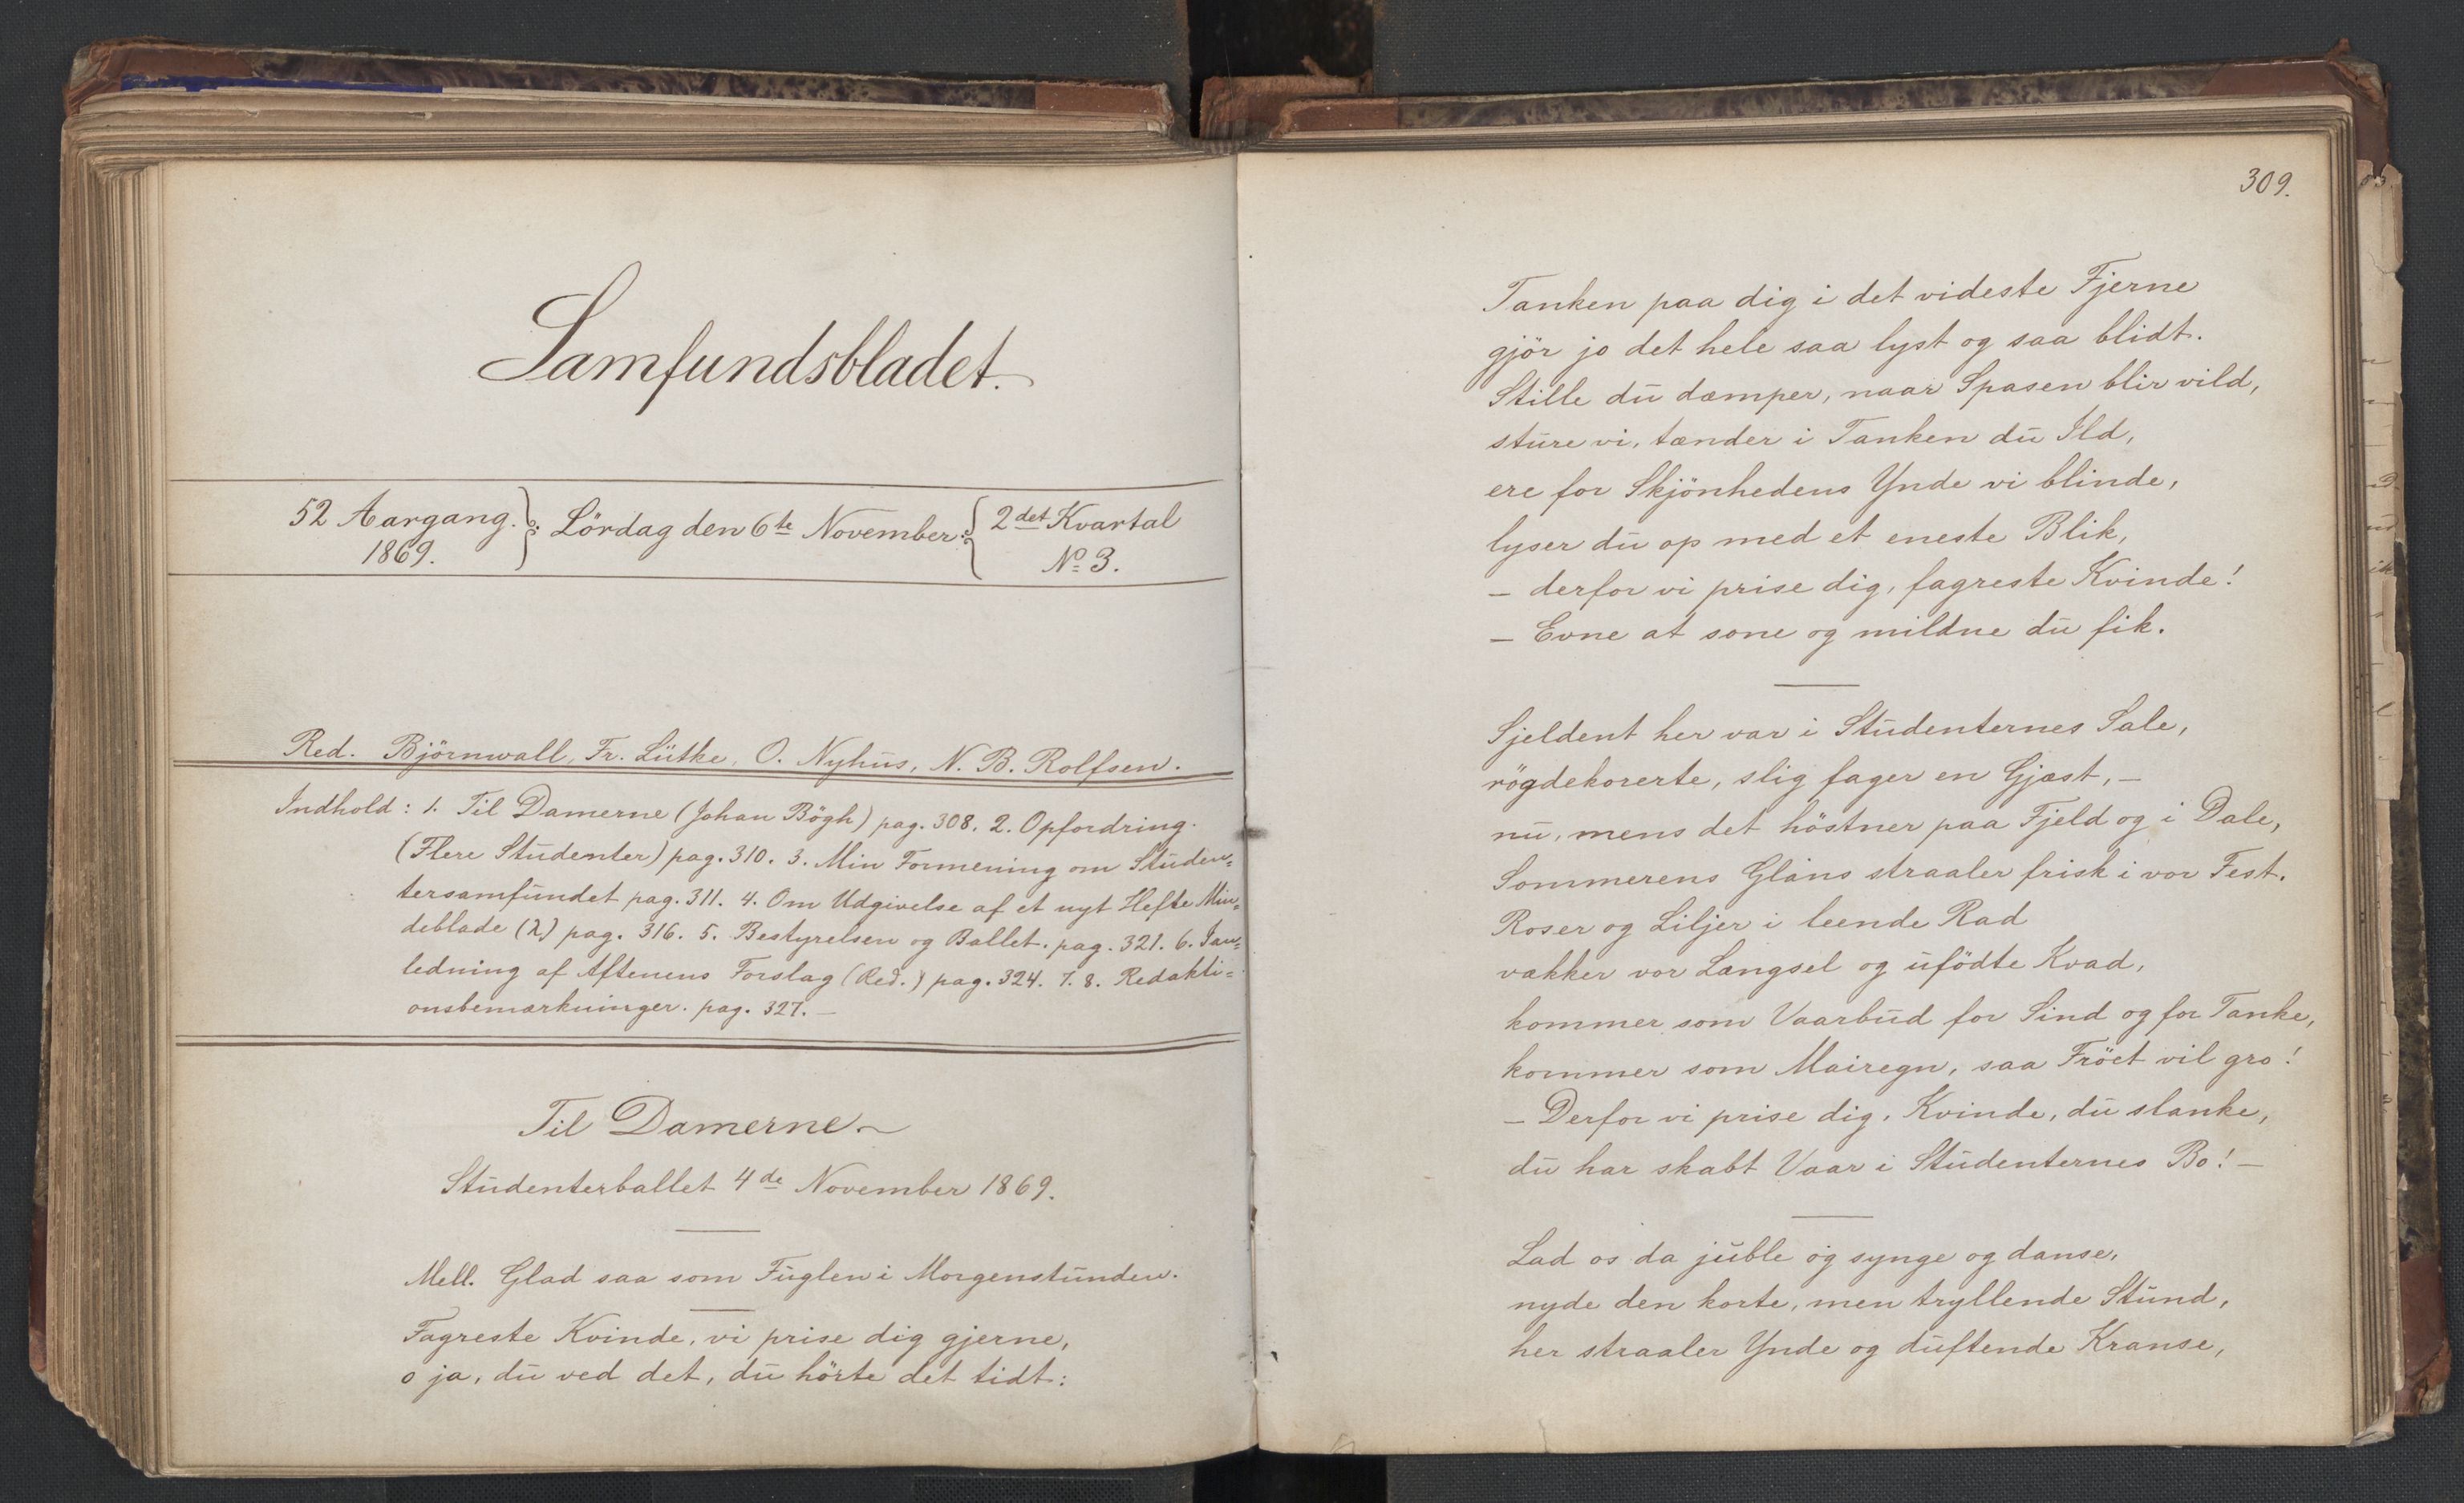 Samfundsbladet.
52 Aargang. 1869. } Lördag den 6te November. { 2det Kvartal No 3.
Red. Björnwall, Fr. Lütke, O. Nyhus, N. B. Rolfsen.
Indhold: 1. Til Damerne (Johan Bögh) pag. 308. 2. Opfordring.
(Flere Studenter) pag. 310. 3. Min Formening om Studen=
tersamfundet pag. 311. 4. Om Udgivelse af et nyt Hefte Min=
deblade (λ) pag. 316. 5. Bestyrelsen og Ballet. pag. 321. 6. I an=
ledning af Aftenens Forslag (Red.) pag. 324. 7. 8. Redakti=
onsbemærkninger. pag. 327. —
Til Damerne
Studenterballet 4de November 1869.
Mell. Glad saa som Fuglen i Morgenstunden.
Fagreste Kvinde, vi prise dig gjerne,
o ja, du ved det, du hörte det tidt:
309.
Tanken paa dig i det videste Fjerne
gjör jo det hele saa lyst og saa blidt.
Stille du dæmper, naar Spasen blir vild,
sture vi, tænder i Tanken du Ild,
ere for Skjönhedens Ynde vi blinde,
lyser du op med et eneste Blik,
— derfor vi prise dig, fagreste Kvinde!
— Evne at sone og mildne du fik.
Sjeldent her var i Studenternes Sale,
rögdekorerte, slig fager en Gjæst, —
nu, mens det höstner paa Fjeld og i Dale,
Sommerens Glans straaler frisk i vor Fest.
Roser og Liljer i leende Rad
vækker vor Længsel og ufödte Kvad,
kommer som Vaarbud for Sind og for Tanke,
kommer som Mairegn, saa Fröet vil gro!
— Derfor vi prise dig, Kvinde, du slanke,
du har skabt Vaar i Studenternes Bo! —
Lad os da juble og synge og danse,
nyde den korte, men tryllende Stund,
her straaler Ynde og duftende Kranse,